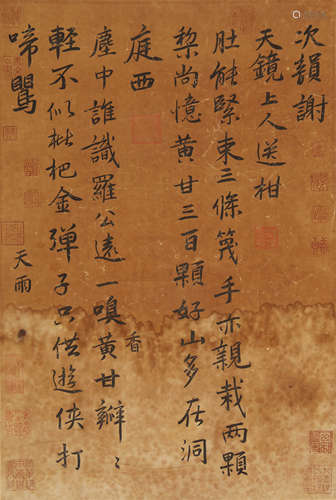 次韻謝
天鏡上人送柑
肚能緊束三條篾手亦親栽两顆
梨尚憶黄甘三百顆好山多在洞
庭西
塵中誰識羅公遠一嗅黄甘瓣〻香
輕不似枇杷金弹子只供遊俠打
啼鶯
天雨